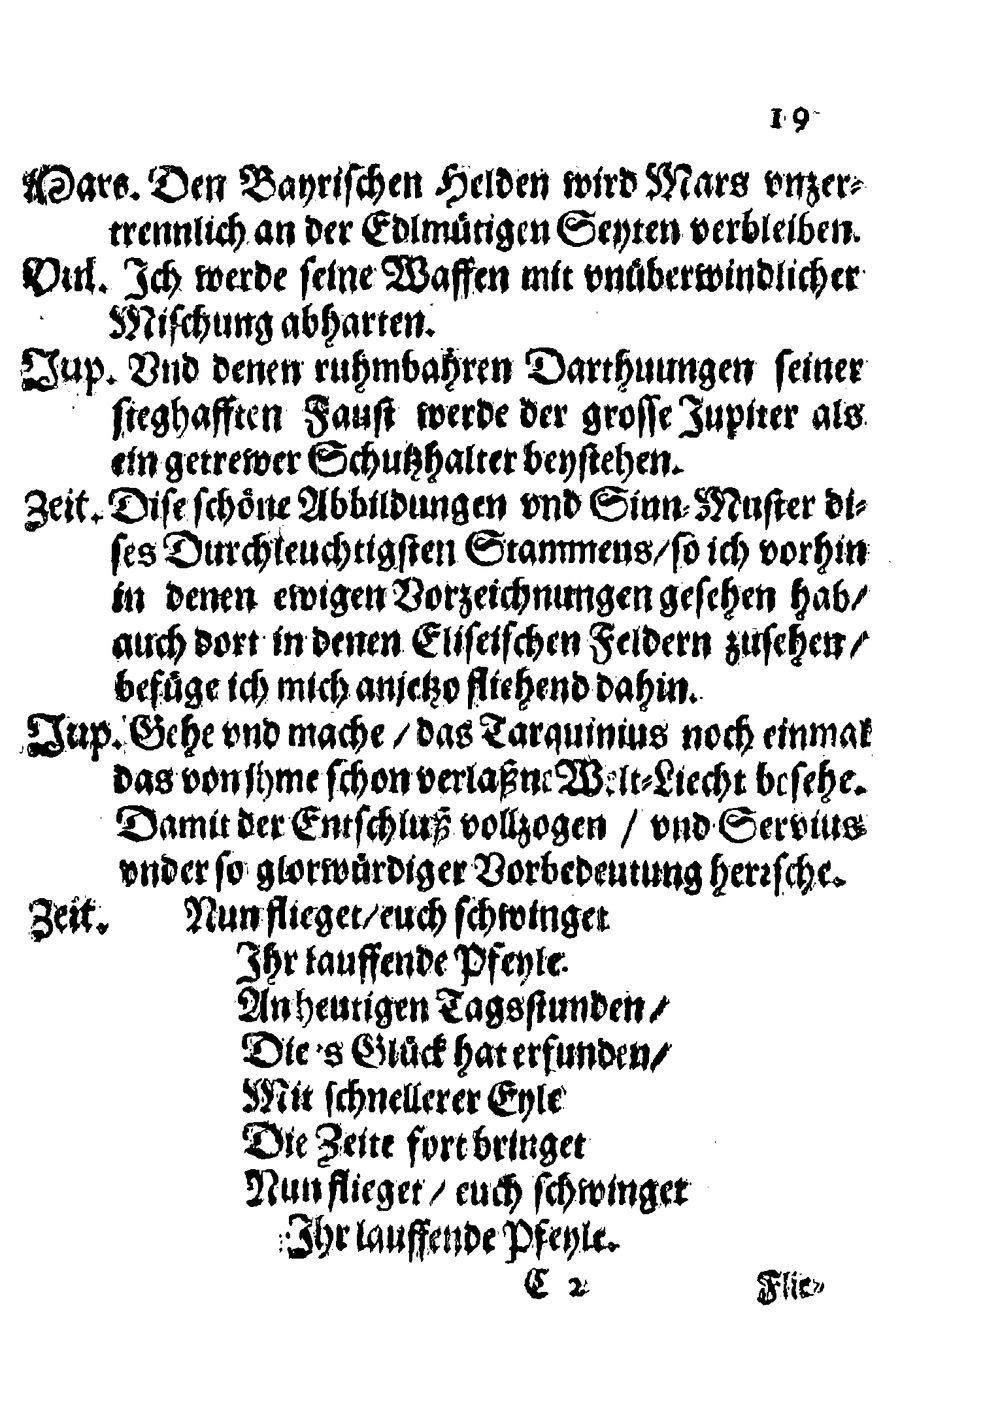 19
Mars. Den Bayrischen Helden wird Mars vnzer-
trennlich an der Edlmütigen Seyten verbleiben.
Vul. Ich werde seine Waffen mit vnüberwindlicher
Mischung abharten.
Jup. Vnd denen ruhmbahren Darthuungen seiner
sieghafften Faust werde der grosse Jupiter als
ein getrewer Schutzhalter beystehen.
Zeit. Dise schöne Abbildungen vnd Sinn-Muster di-
ses Durchleuchtigsten Stammens/so ich vorhin
in denen ewigen Vorzeichnungen gesehen hab/
auch dort in denen Eliseischen Feldern zusehen/
befüge ich mich anjetzo fliehend dahin.
Jup. Gehe vnd mache / das Tarquinius noch einmal
das von jhme schon verlaßne Welt-Liecht besehe.
Damit der Entschluß vollzogen / vnd Servius
vnder so glorwürdiger Vorbedeutung herrsche.
Zeit. Nun flieget/euch schwinget
Ihr lauffende Pfeyle.
An heutigen Tagsstunden/
Die 's Glück hat erfunden/
Mit schnellerer Eyle
Die Zeite fort bringet
Nun flieget/ euch schwinget
Ihr lauffende Pfeyle.
C 2 Flie-